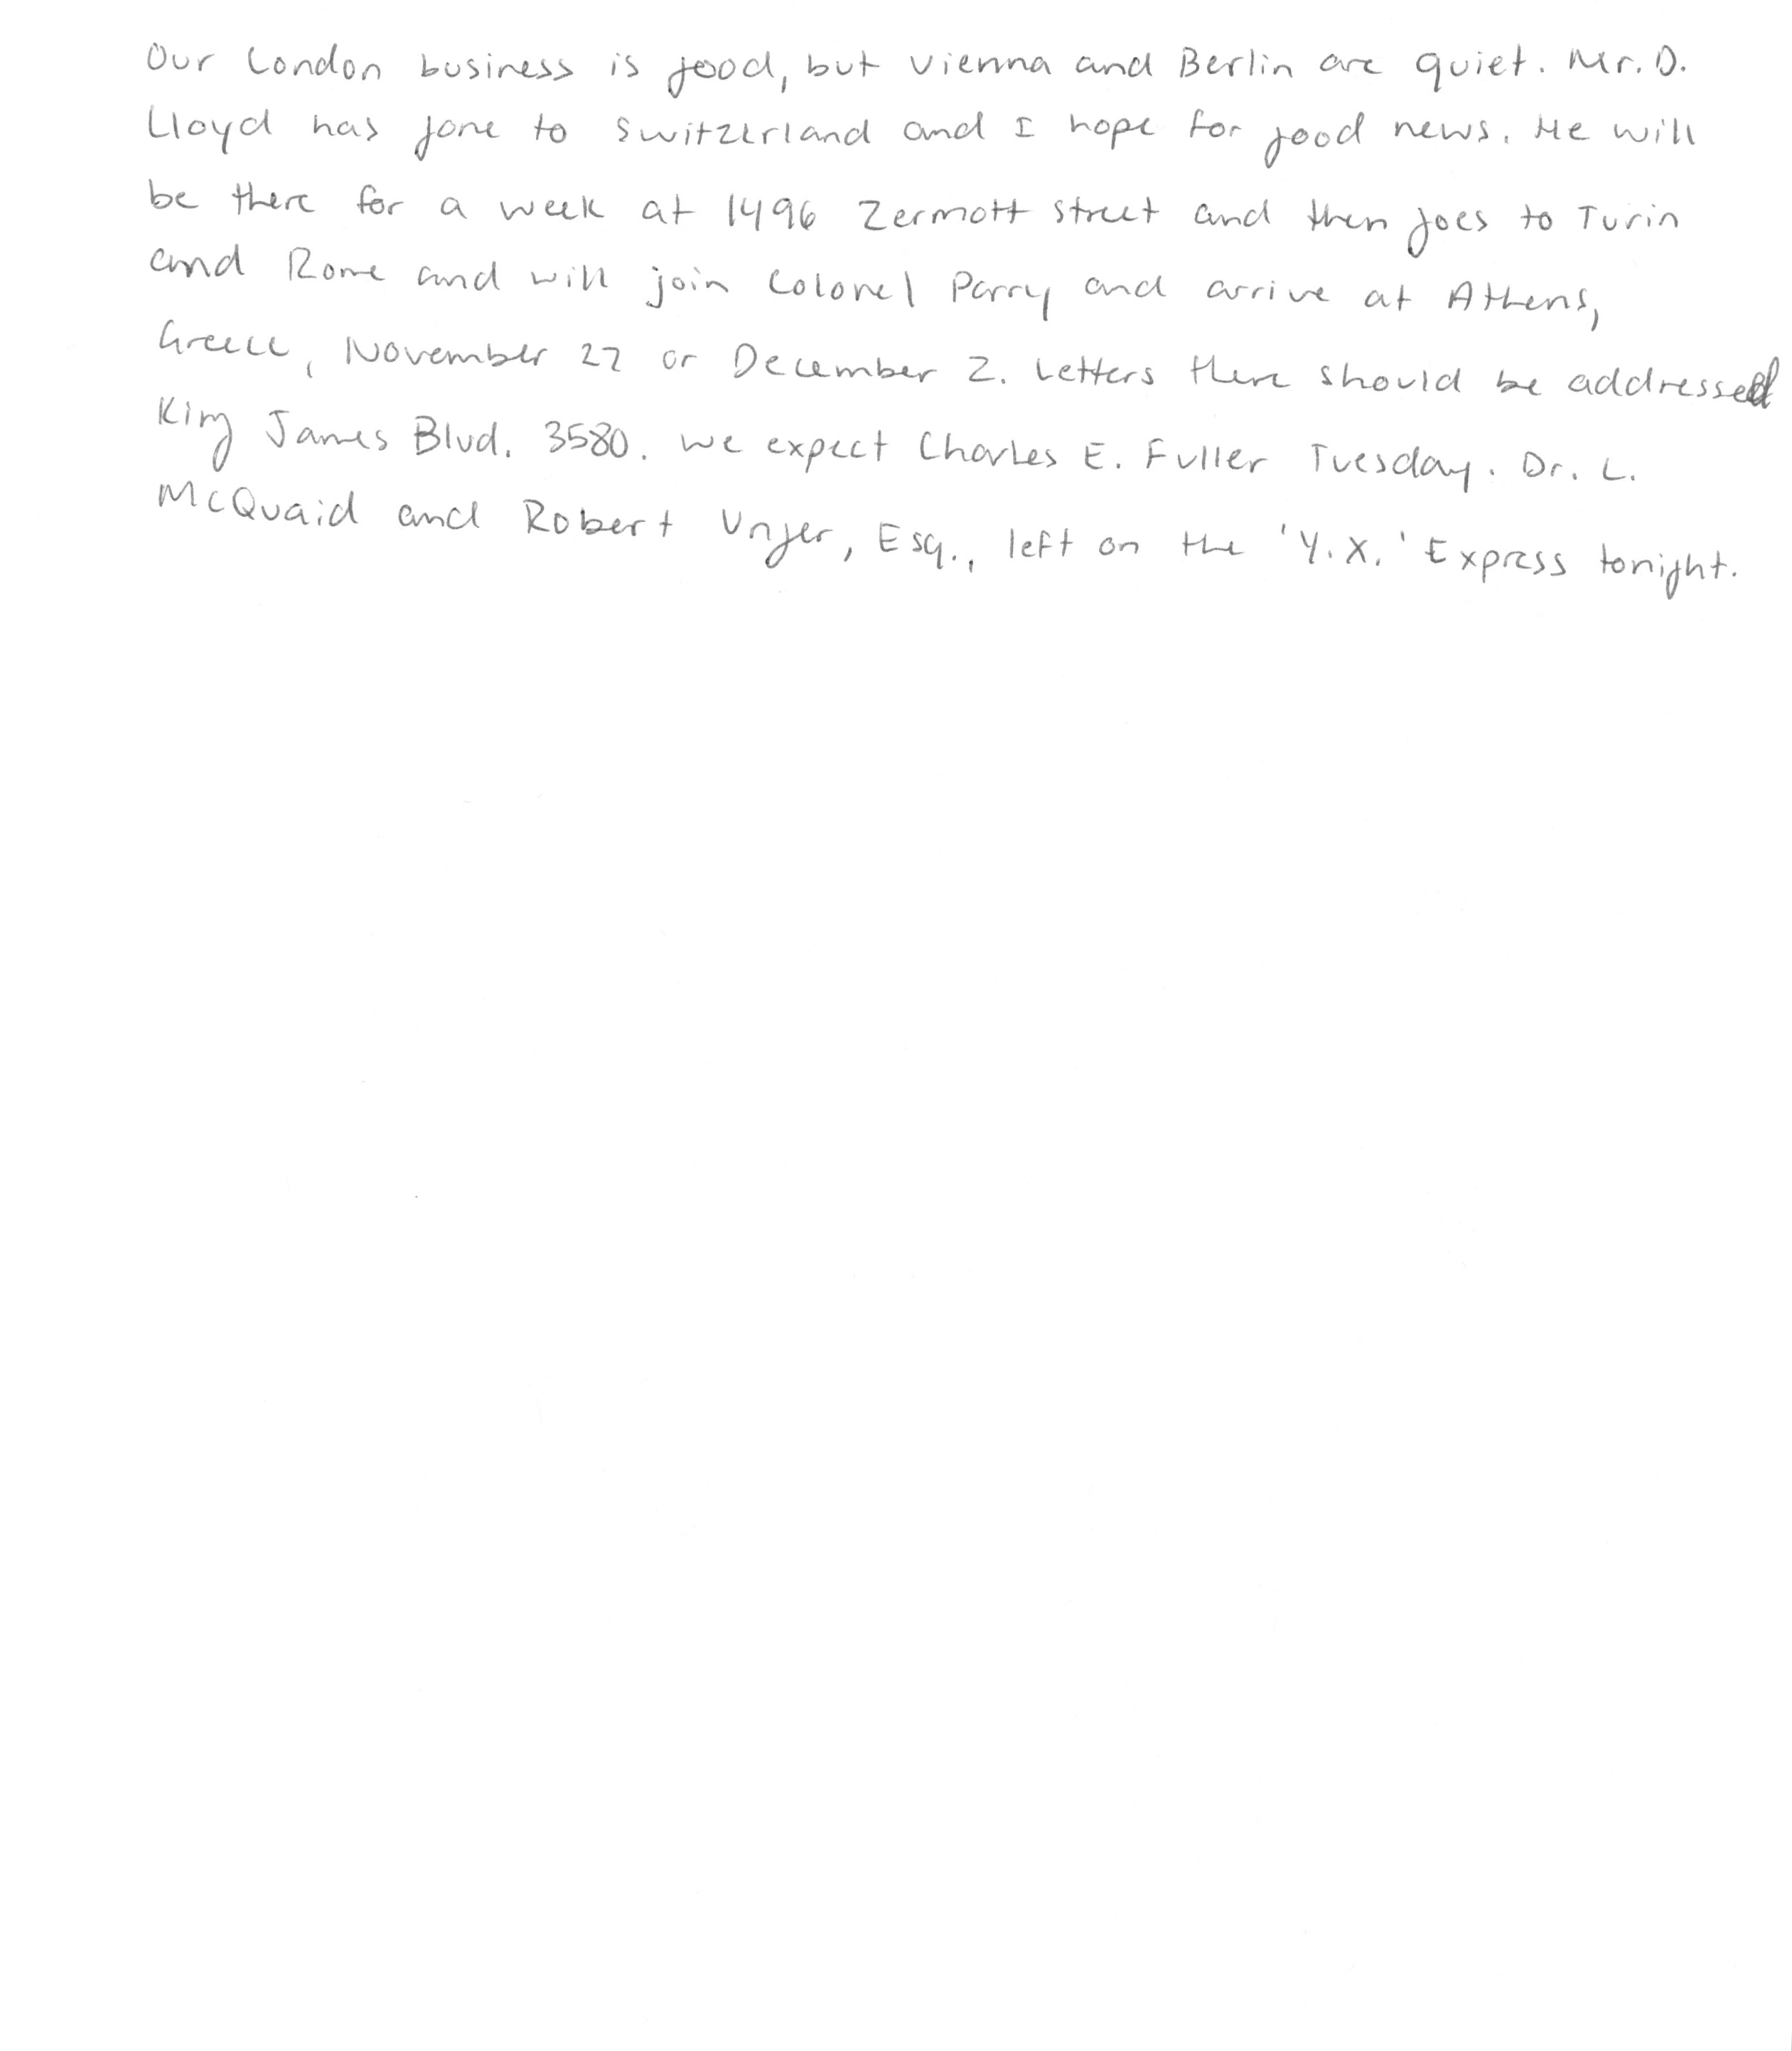 Our London business is good, but Vienna and Berlin are quiet. Mr. D.
Lloyd has gone to Switzerland and I hope for good news. He will
be there for a week at 1496 Zermott Street and then goes to Turin
and Rome and will join Colonel Parry and arrive at Athens,
Greece, November 27 or December 2. Letters there should be addressed
King James Blvd. 3580. We expect Charles E. Fuller Tuesday. Dr. L.
McQuaid and Robert Unger, Esq., left on the 'Y.X.' Express tonight.